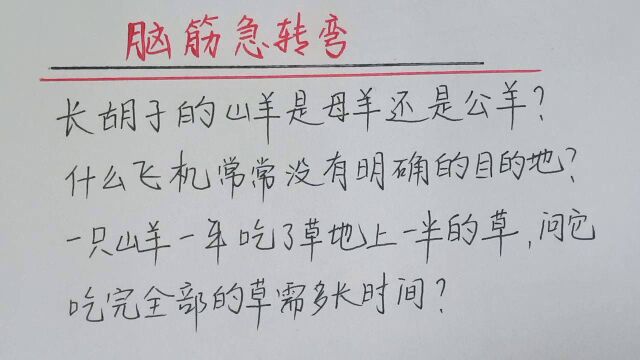 脑筋急转弯
长胡子的山羊是母羊还是公羊？
什么飞机常常没有明确的目的地？
一只山羊一年吃了草地上一半的草，问它
吃完全部的草需多长时间？